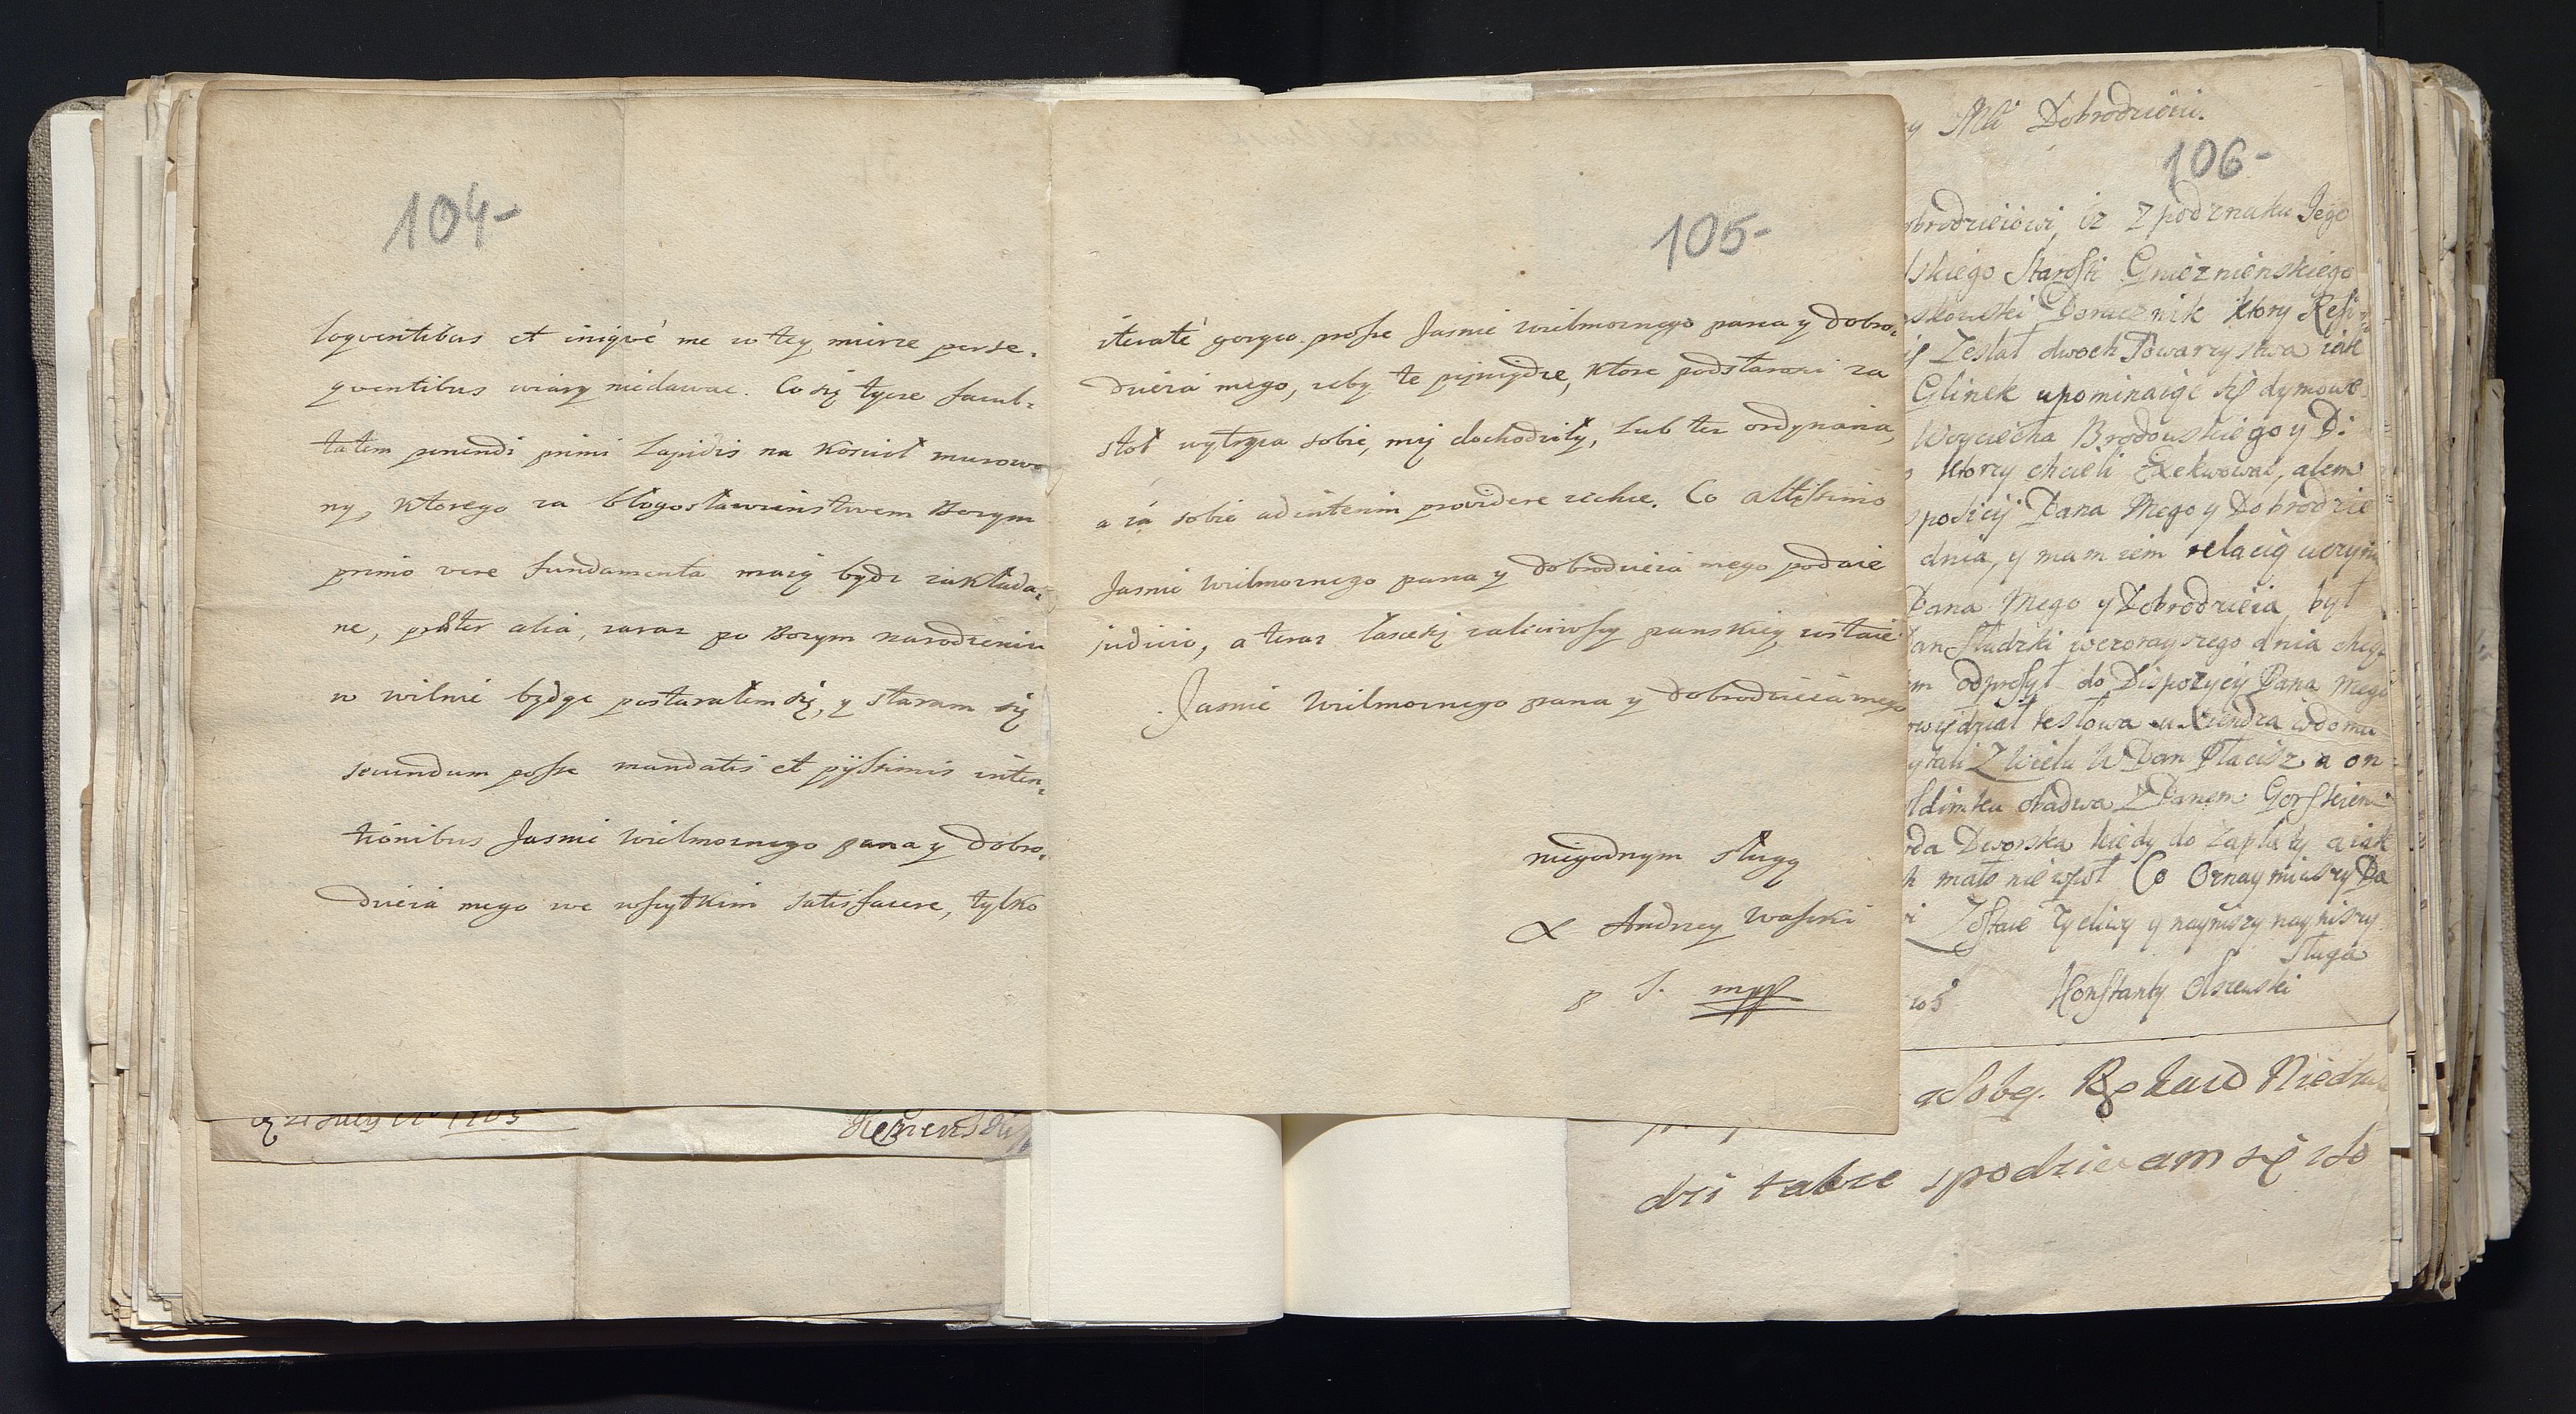 104-
loqventibus et iniqvè me w tey mierze perse,
qventibus wiary niedawac. Co się tycze facul,
tatem ponendi primi Lapidis na Koscioł murowa
ny, Ktorego za błogosławienstwem Bozym
primo vere fundamenta maią bydz zakłada,
ne, præter alia, zaraz po Bozym narodzeniu
w wilnie będąc postarałem się, y staram się
secundum posse mandatis et pijssimis inten,
tionibus Jasnie Wielmoznego pana y dobro,
dzieia mego we wszytkim satisfacere, tylko
105-
iteratè gorąco prosze Jasnie wielmoznego pana y dobro,
dzieia mego, zeby te pięniędze, Ktore podstarosci za
stoł wytrzca sobie, mię dochodziły, Lub tez ordynaria,
a ia sobie ad interim providere zechce. Co altissimo
Jasnie Wielmoznego pana y dobrodzieia mego podaie
judicio, a teraz łascekę zaliciwszy panskiey zostaie
Jasnie Wielmoznego pana y dobrodzieia mego
niegodnym sługą
X Andrzey Waszki
p S. mpp
106-
y Mći Dobrodzieiu.
obrodzieiowi, iz z pod znaku Jego
skiego Starosti Gnieznienskiego
skowski Poruicznik Ktory Resi
Zesłał dwoch Towarzystwa iak
Glinek upominaiąc się dymowe
Woyciecha Brodowskiego y Di
ktorzy chcieli Exekwowac, alem
posicij Pana Mego y Dobrodzie
dnia, y mam iem relacią uczyni
Pana Mego y Dobrodzieia był
an Sludzki wczorayszego dnia chcąc
m odpresył do Dispozycij Pana mego
owiedział te słowa u Xiendza w domu
ytali Z Wiela W Pan Płacisz a on
ldimku obadwa Z Panem Gorskiem
da Dworska kiedy do Zapłaty a iak
mało nie wzioł Co Oznaymiwszy Pa
Zostaie Zycliwy y naynisszy naynisszy
Sługa
Konstanty Olszewski
21 July Ao 1705
a Sobą. Rękawd Niedzie
dzi takze spodziewam się zso